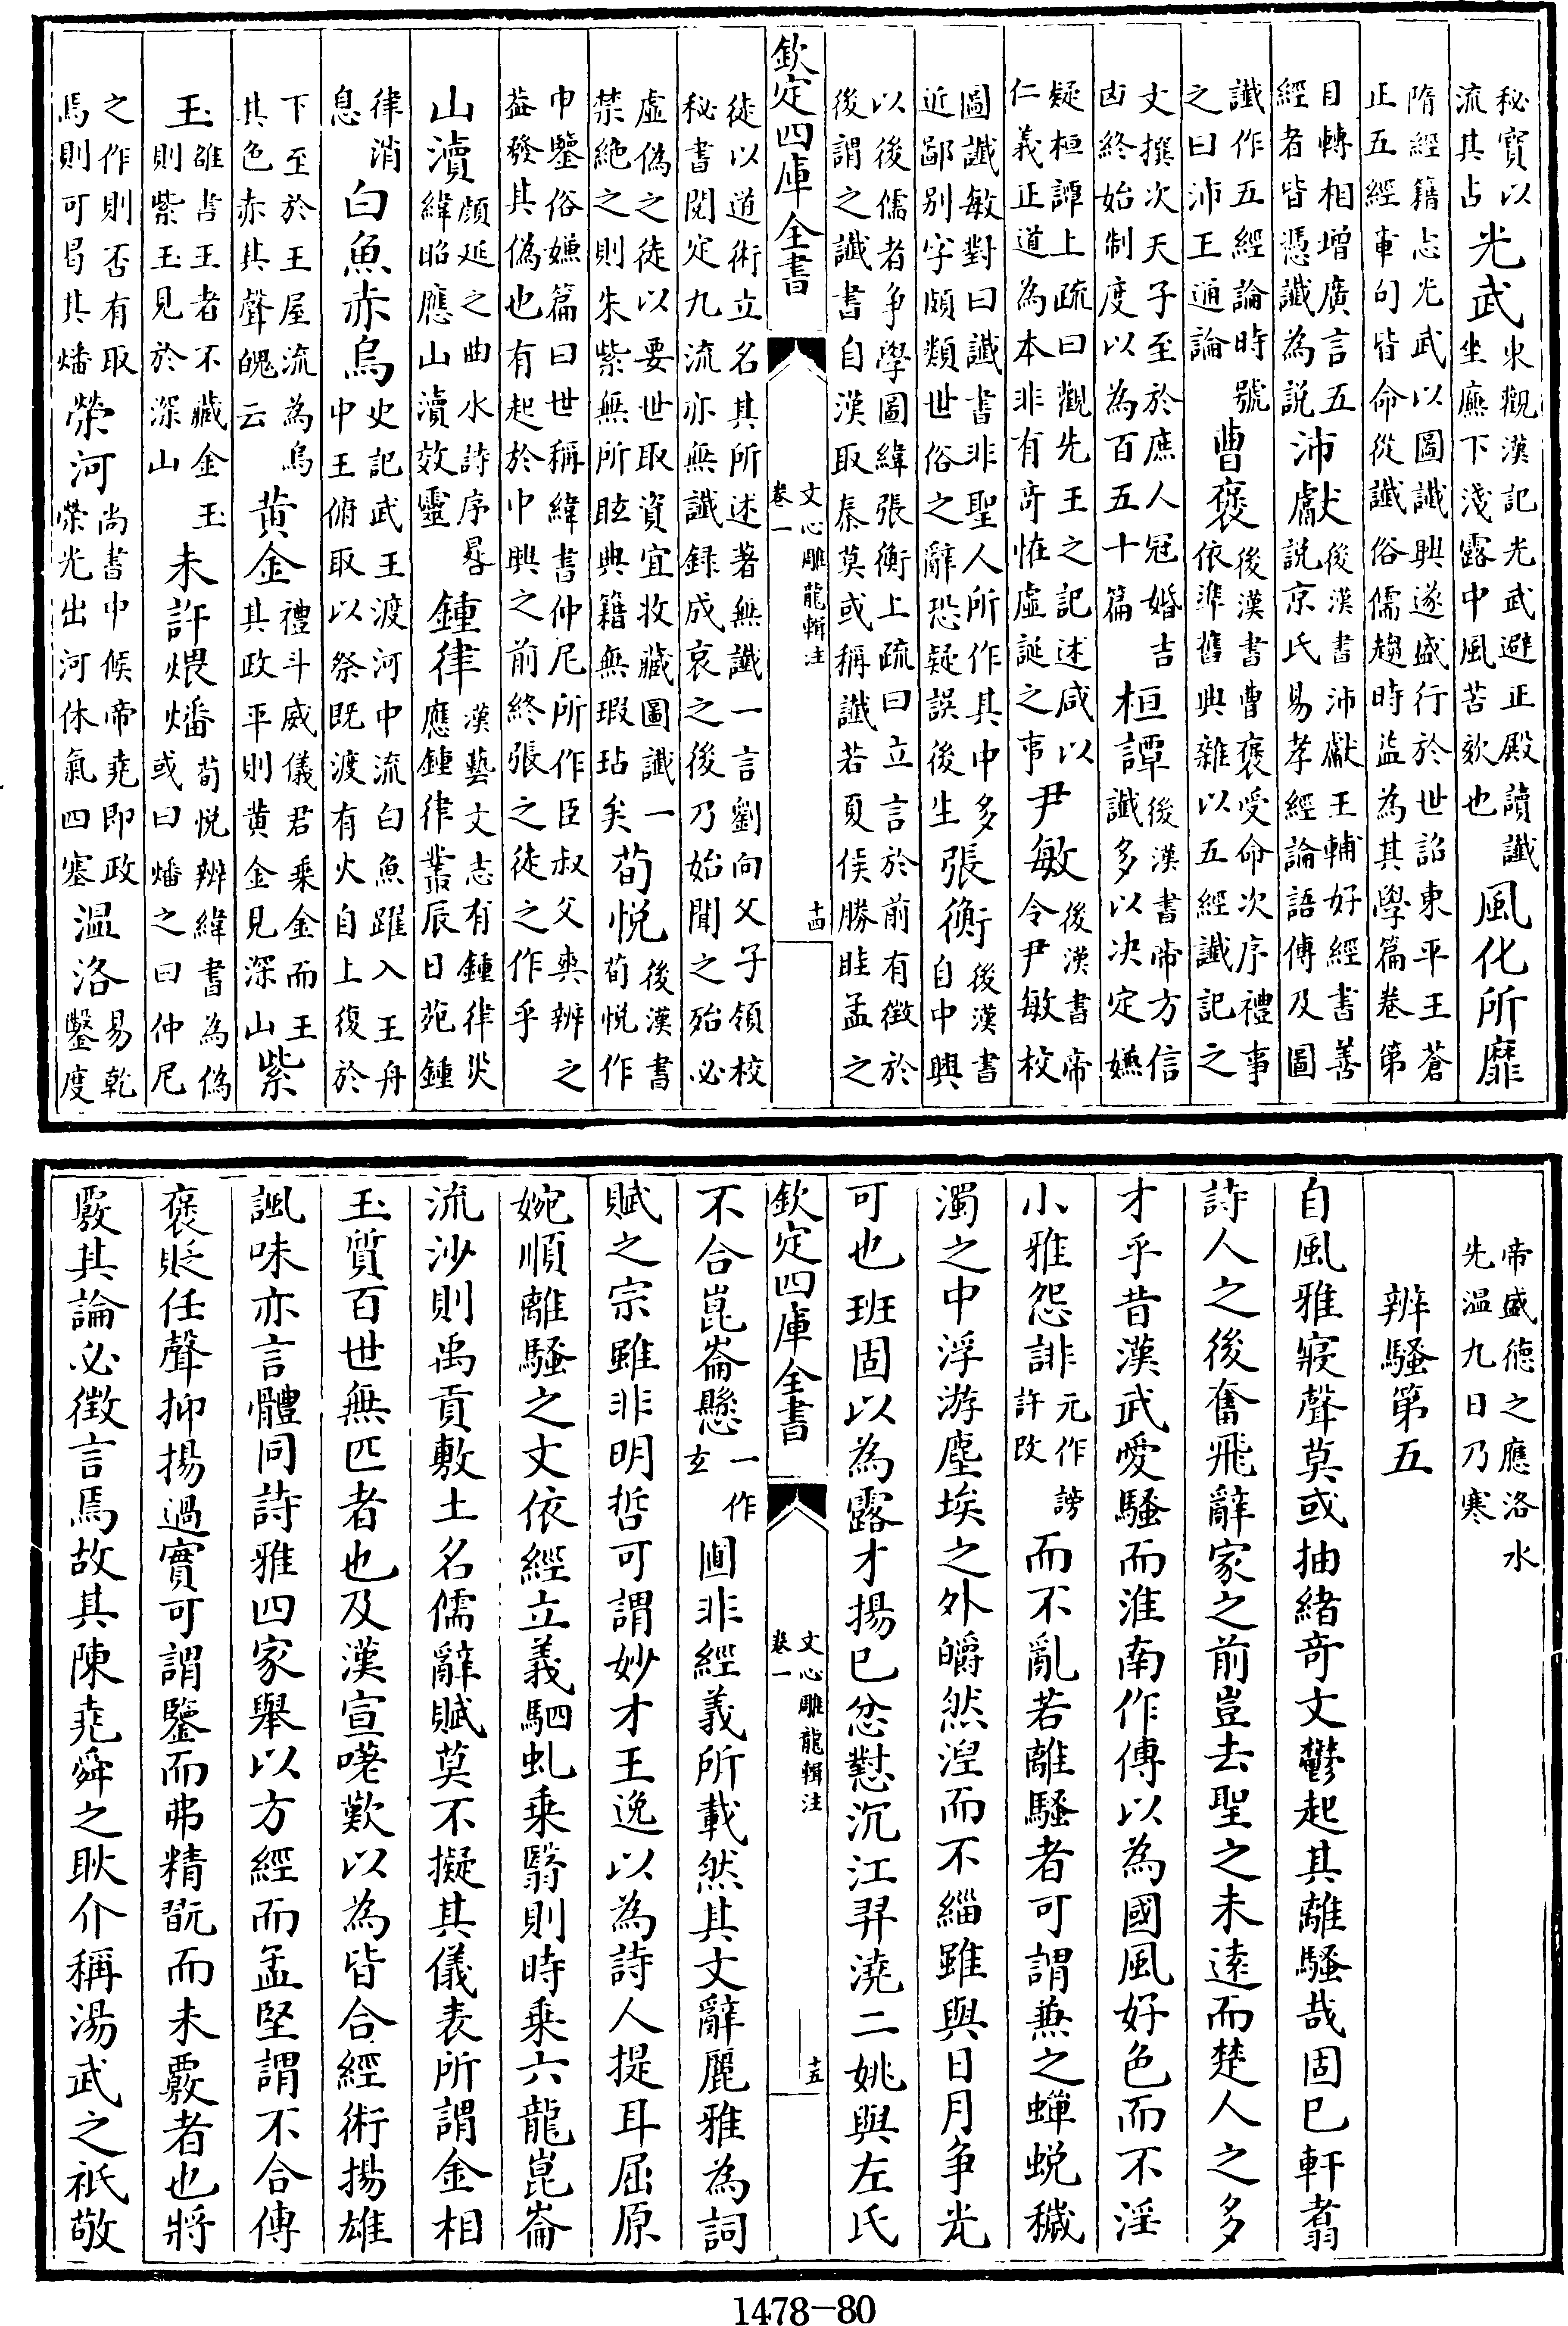 秘寳以
流其占
光武
東觀漢記光武避正殿讀讖
坐廡下淺露中風苦欬也
風化所靡
隋經籍志光武以圖讖興遂盛行於世詔東平王蒼
正五經章句皆命從讖俗儒趨時益為其學篇卷第
目轉相增廣言五
經者皆憑讖為說
沛獻
後漢書沛獻王輔好經書善
說京氏易孝經論語傳及圖
讖作五經論時號
之曰沛王通論
曹褒
後漢書曹褒受命次序禮事
依準舊典雜以五經讖記之
文撰次天子至於庶人冠婚吉
凶終始制度以為百五十篇
桓譚
後漢書帝方信
讖多以決定嫌
疑桓譚上疏曰觀先王之記述咸以
仁義正道為本非有奇怪虛誕之事
尹敏
後漢書帝
令尹敏校
圖讖敏對曰讖書非聖人所作其中多
近鄙別字頗類世俗之辭恐疑誤後生
張衡
後漢書
自中興
以後儒者爭學圖緯張衡上疏曰立言於前有徵於
後謂之讖書自漢取秦莫或稱讖若夏侯勝眭孟之
欽定四庫全書
文心雕龍輯注
卷一
十四
徒以道術立名其所述著無讖一言劉向父子領校
秘書閱定九流亦無讖録成哀之後乃始聞之殆必
虛偽之徒以要世取資宜收藏圖讖一
禁絶之則朱紫無所眩典籍無瑕玷矣
荀悦
後漢書
荀悦作
申鑒俗嫌篇曰世稱緯書仲尼所作臣叔父爽辨之
葢發其偽也有起於中興之前終張之徒之作乎
山瀆
顔延之曲水詩序晷
緯昭應山瀆效靈
鍾律
漢藝文志有鍾律災
應鍾律叢辰日苑鍾
律消
息
白魚赤烏
史記武王渡河中流白魚躍入王舟
中王俯取以祭既渡有火自上復於
下至於王屋流為烏
其色赤其聲魄云
黄金
禮斗威儀君乘金而王
其政平則黄金見深山
紫
玉
雒書王者不藏金玉
則紫玉見於深山
未許煨燔
荀悦辨緯書為偽
或曰燔之曰仲尼
之作則否有取
焉則可曷其燔
榮河
尚書中候帝堯即政
榮光出河休氣四塞
温洛
易乾
鑿度
帝盛德之應洛水
先温九日乃寒
辨騷第五
自風雅寢聲莫或抽緒奇文鬱起其離騷哉固已軒翥
詩人之後奮飛辭家之前豈去聖之未遠而楚人之多
才乎昔漢武愛騷而淮南作傳以為國風好色而不淫
小雅怨誹
元作謗
許改
而不亂若離騷者可謂兼之蟬蛻穢
濁之中浮游塵埃之外皭然涅而不緇雖與日月爭光
可也班固以為露才揚己忿懟沉江羿澆二姚與左氏
欽定四庫全書
文心雕龍輯注
卷一
十五
不合崑崙懸
一作
玄
圃非經義所載然其文辭麗雅為詞
賦之宗雖非明哲可謂妙才王逸以為詩人提耳屈原
婉順離騷之文依經立義駟虬乘翳則時乘六龍崑崙
流沙則禹貢敷土名儒辭賦莫不擬其儀表所謂金相
玉質百世無匹者也及漢宣嗟歎以為皆合經術揚雄
諷味亦言體同詩雅四家舉以方經而孟堅謂不合傳
褒貶任聲抑揚過實可謂鑒而弗精翫而未覈者也將
覈其論必徵言焉故其陳堯舜之耿介稱湯武之祇敬
1478-80